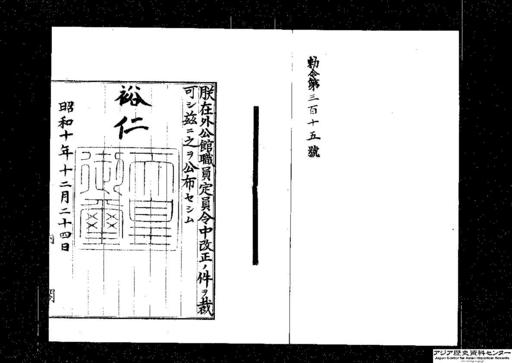 勅令第三百十五號
朕在外公館職員定員令中改正ノ件ヲ裁
可シ茲ニ之ヲ公布セシム
裕仁
天皇御璽
昭和十年十二月二十四日
内閣
アジア歴史資料センター
Japan Center for Asian Historical Records